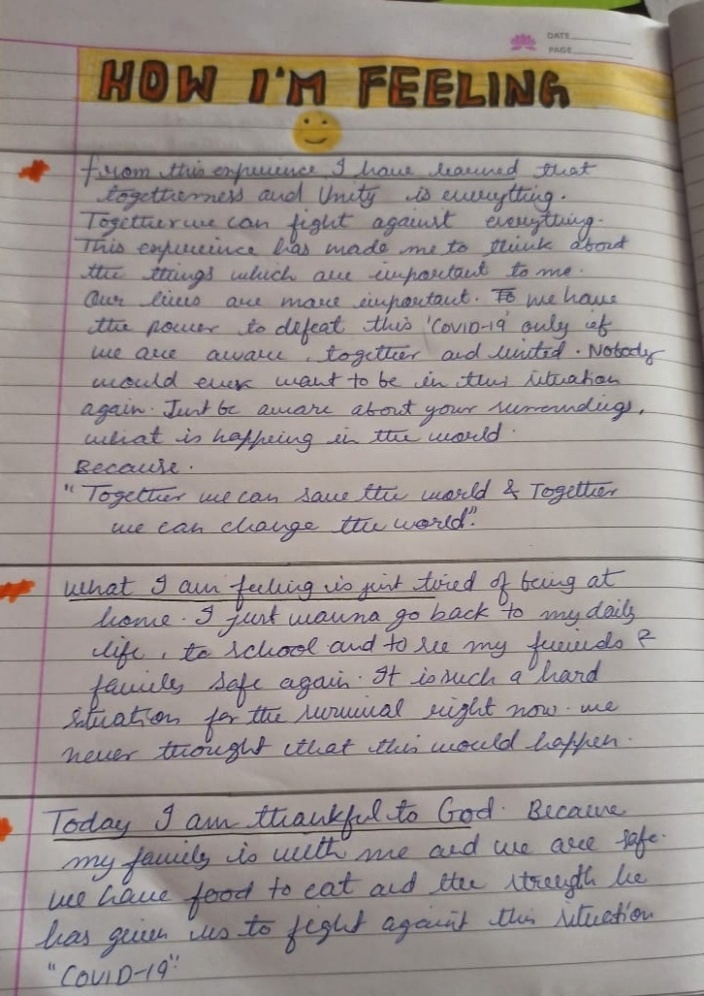 DATE
PAGE
HOW I'M FEELING
from this experience, I have learned that
togetherness and Unity is everything.
Together we can fight against everything.
This experience has made me to think about
the things which are important to me.
Our lives are more important. To we have
the power to defeat this 'COVID-19' only if
we are aware, together and united. Nobody
would ever want to be in this situation
again. Just be aware about your surroundings,
what is happeing in the world.
Because.
"Together we can save the world & Together
we can change the world".
What I am feeling is just tired of being at
home. I just wanna go back to my daily
life, to school and to see my friends &
family safe again. It is such a hard
situation for the survival right now. we
never thought that this would happen.
Today I am thankful to God. Because
my family is with me and we are safe.
we have food to eat and the strength he
has given us to fight against this situation
"COVID-19".